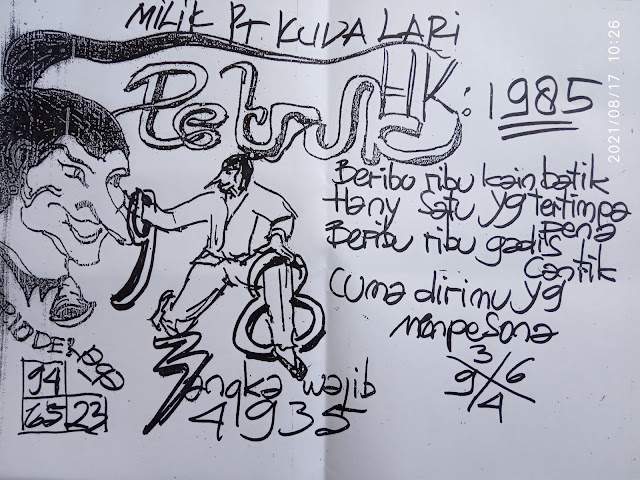 MILIK PT KUDA LARI
Petruk
HK: 1985
2021/08/17 10:26
Beribu ribu kain batik
Hany satu yg tertimpa
Pena
Beribu ribu gadis
Cantik
Cuma dirimu yg
Menpesona
3
9 6
4
94
65 23
3 angka wajib
4935